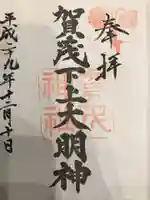 奉拝
賀茂下上大明神
平成二九年十二月十日